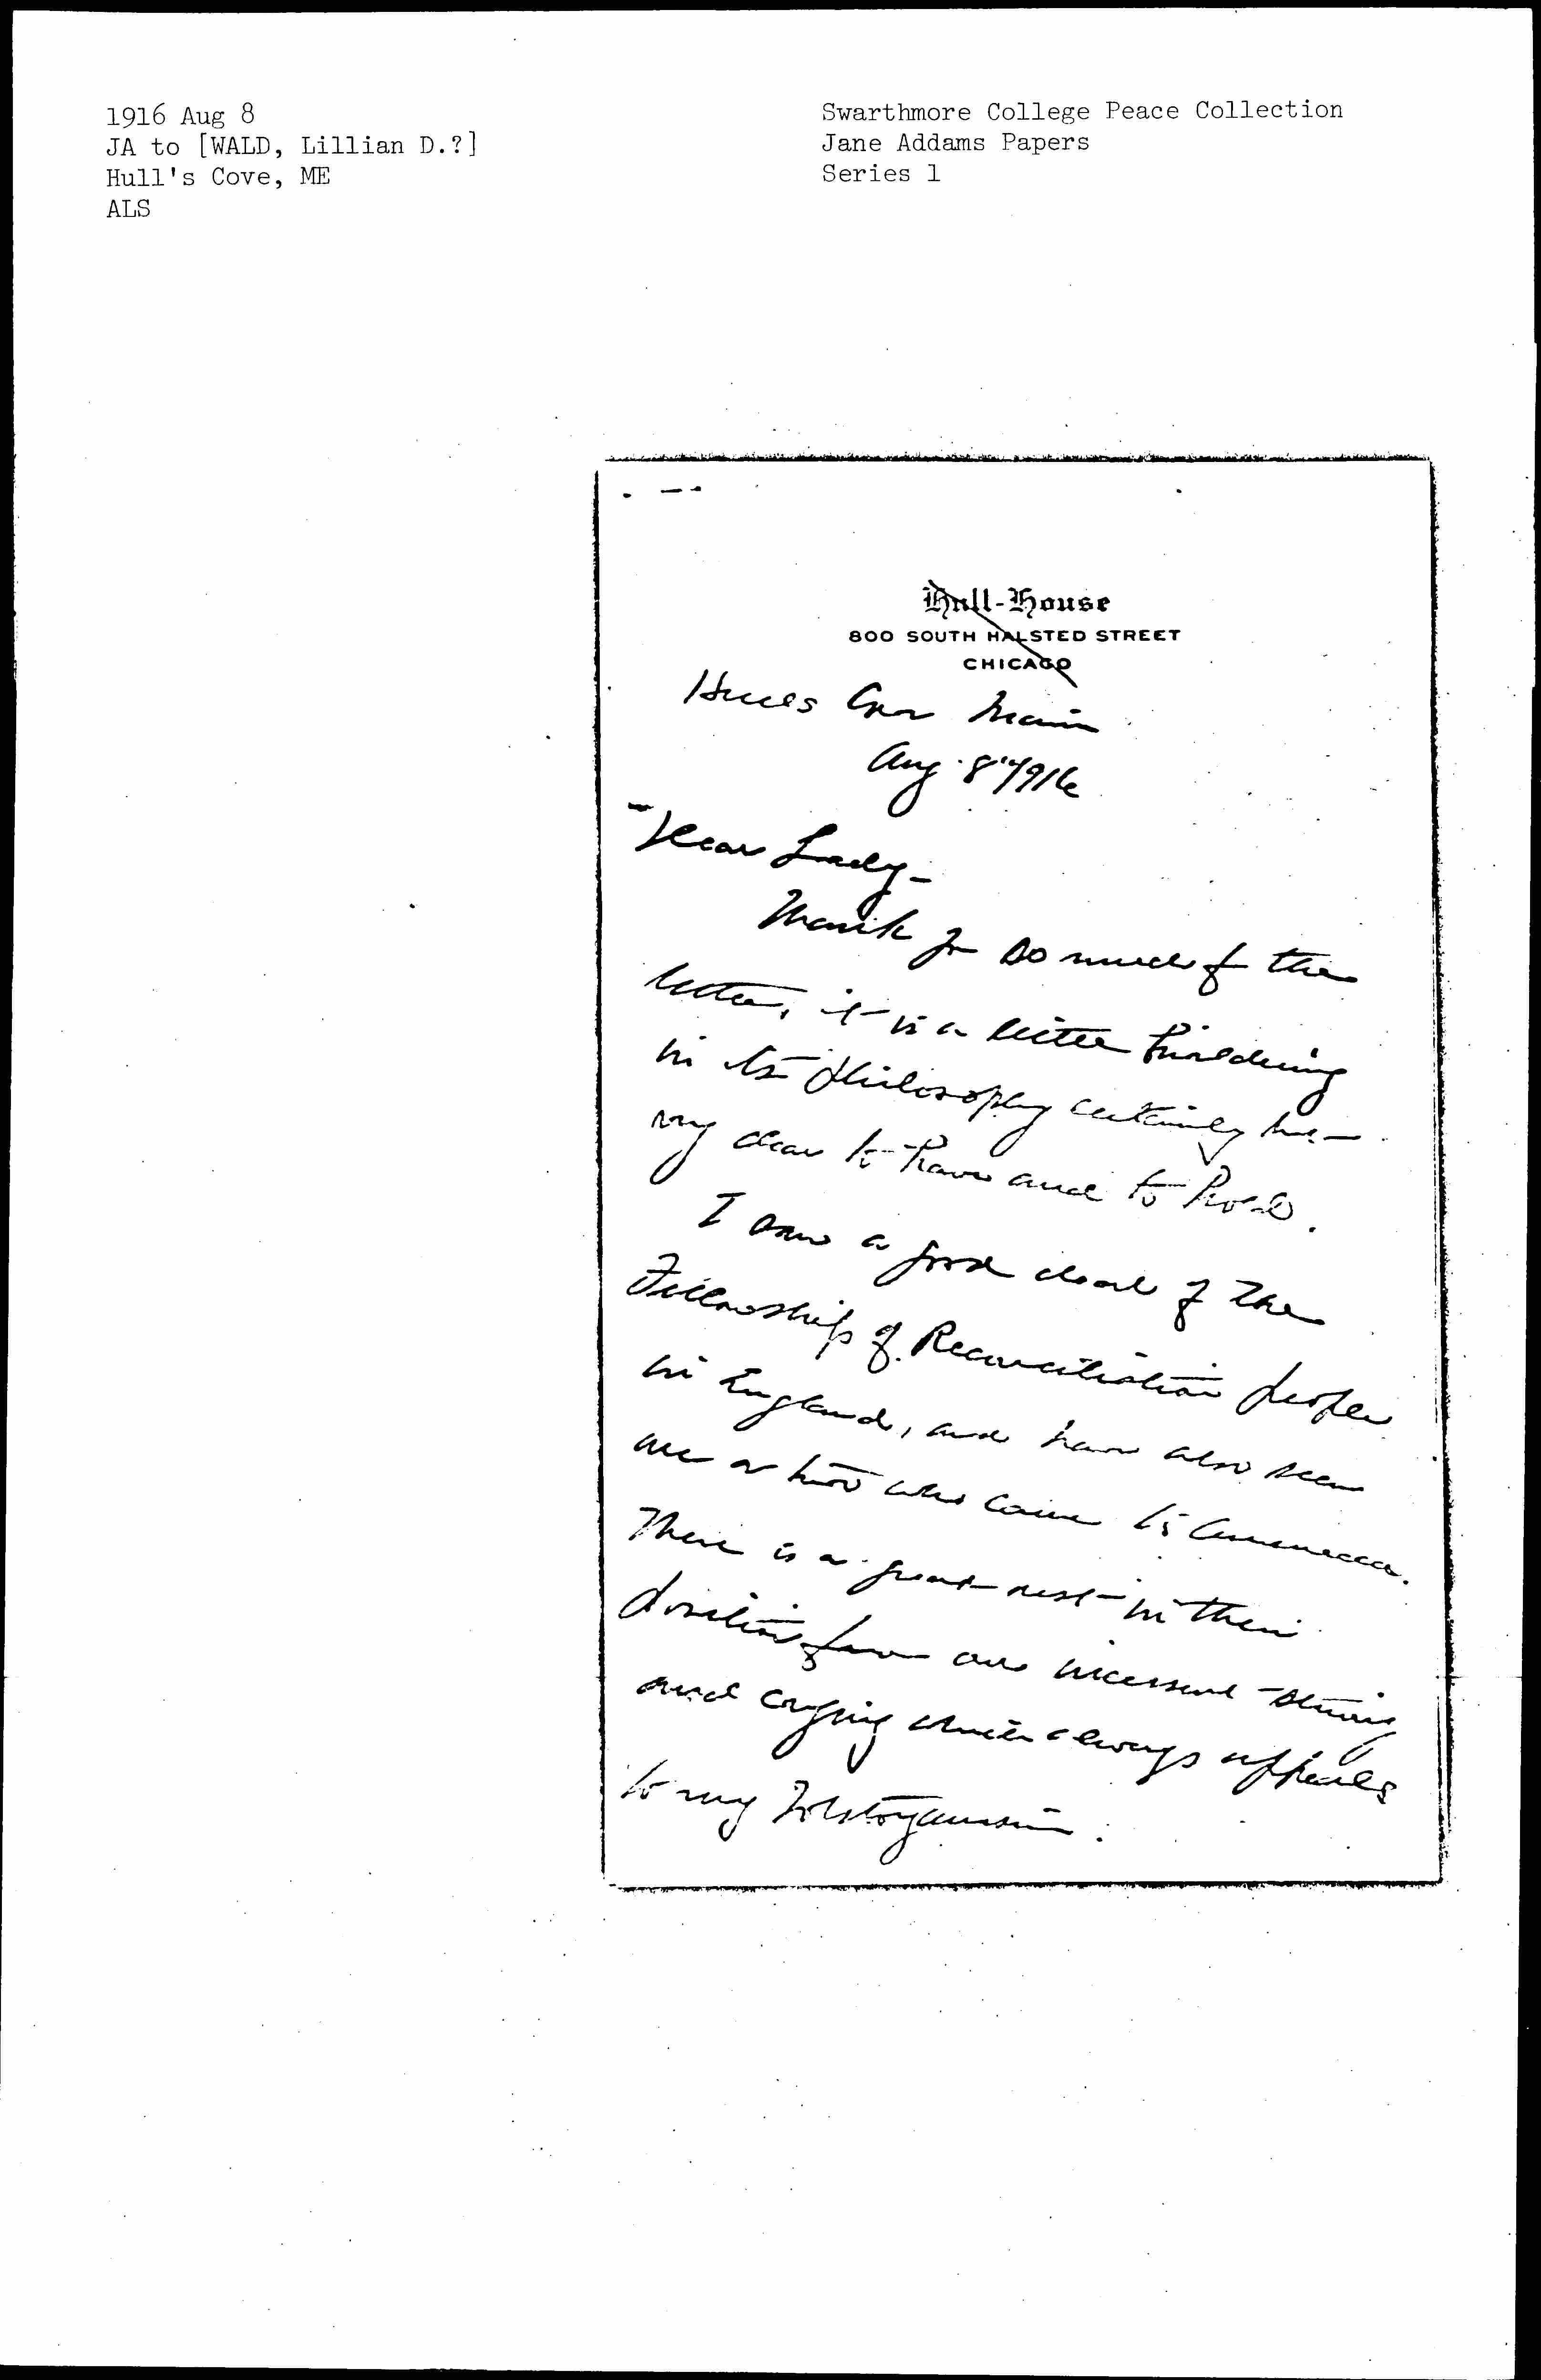 1916 Aug 8
JA to [WALD, Lillian D.?]
Hull's Cove, ME
ALS
Swarthmore College Peace Collection
Jane Addams Papers
Series 1
Hull-House
800 SOUTH HALSTED STREET
CHICAGO
Hulls Cove Maine
Aug. 8" 1916
Dear Lady -
Thank you so much for the
letter, it is a little bewildering
in its philosophy certainly but
very dear to have and to hold.
I saw a good deal of the
Fellowship of Reconciliation people
in England, and have also seen
one or two who came to America.
There is a great rest in their
position from our incessant
and crying which always appeals
to my Tolstoyanism.